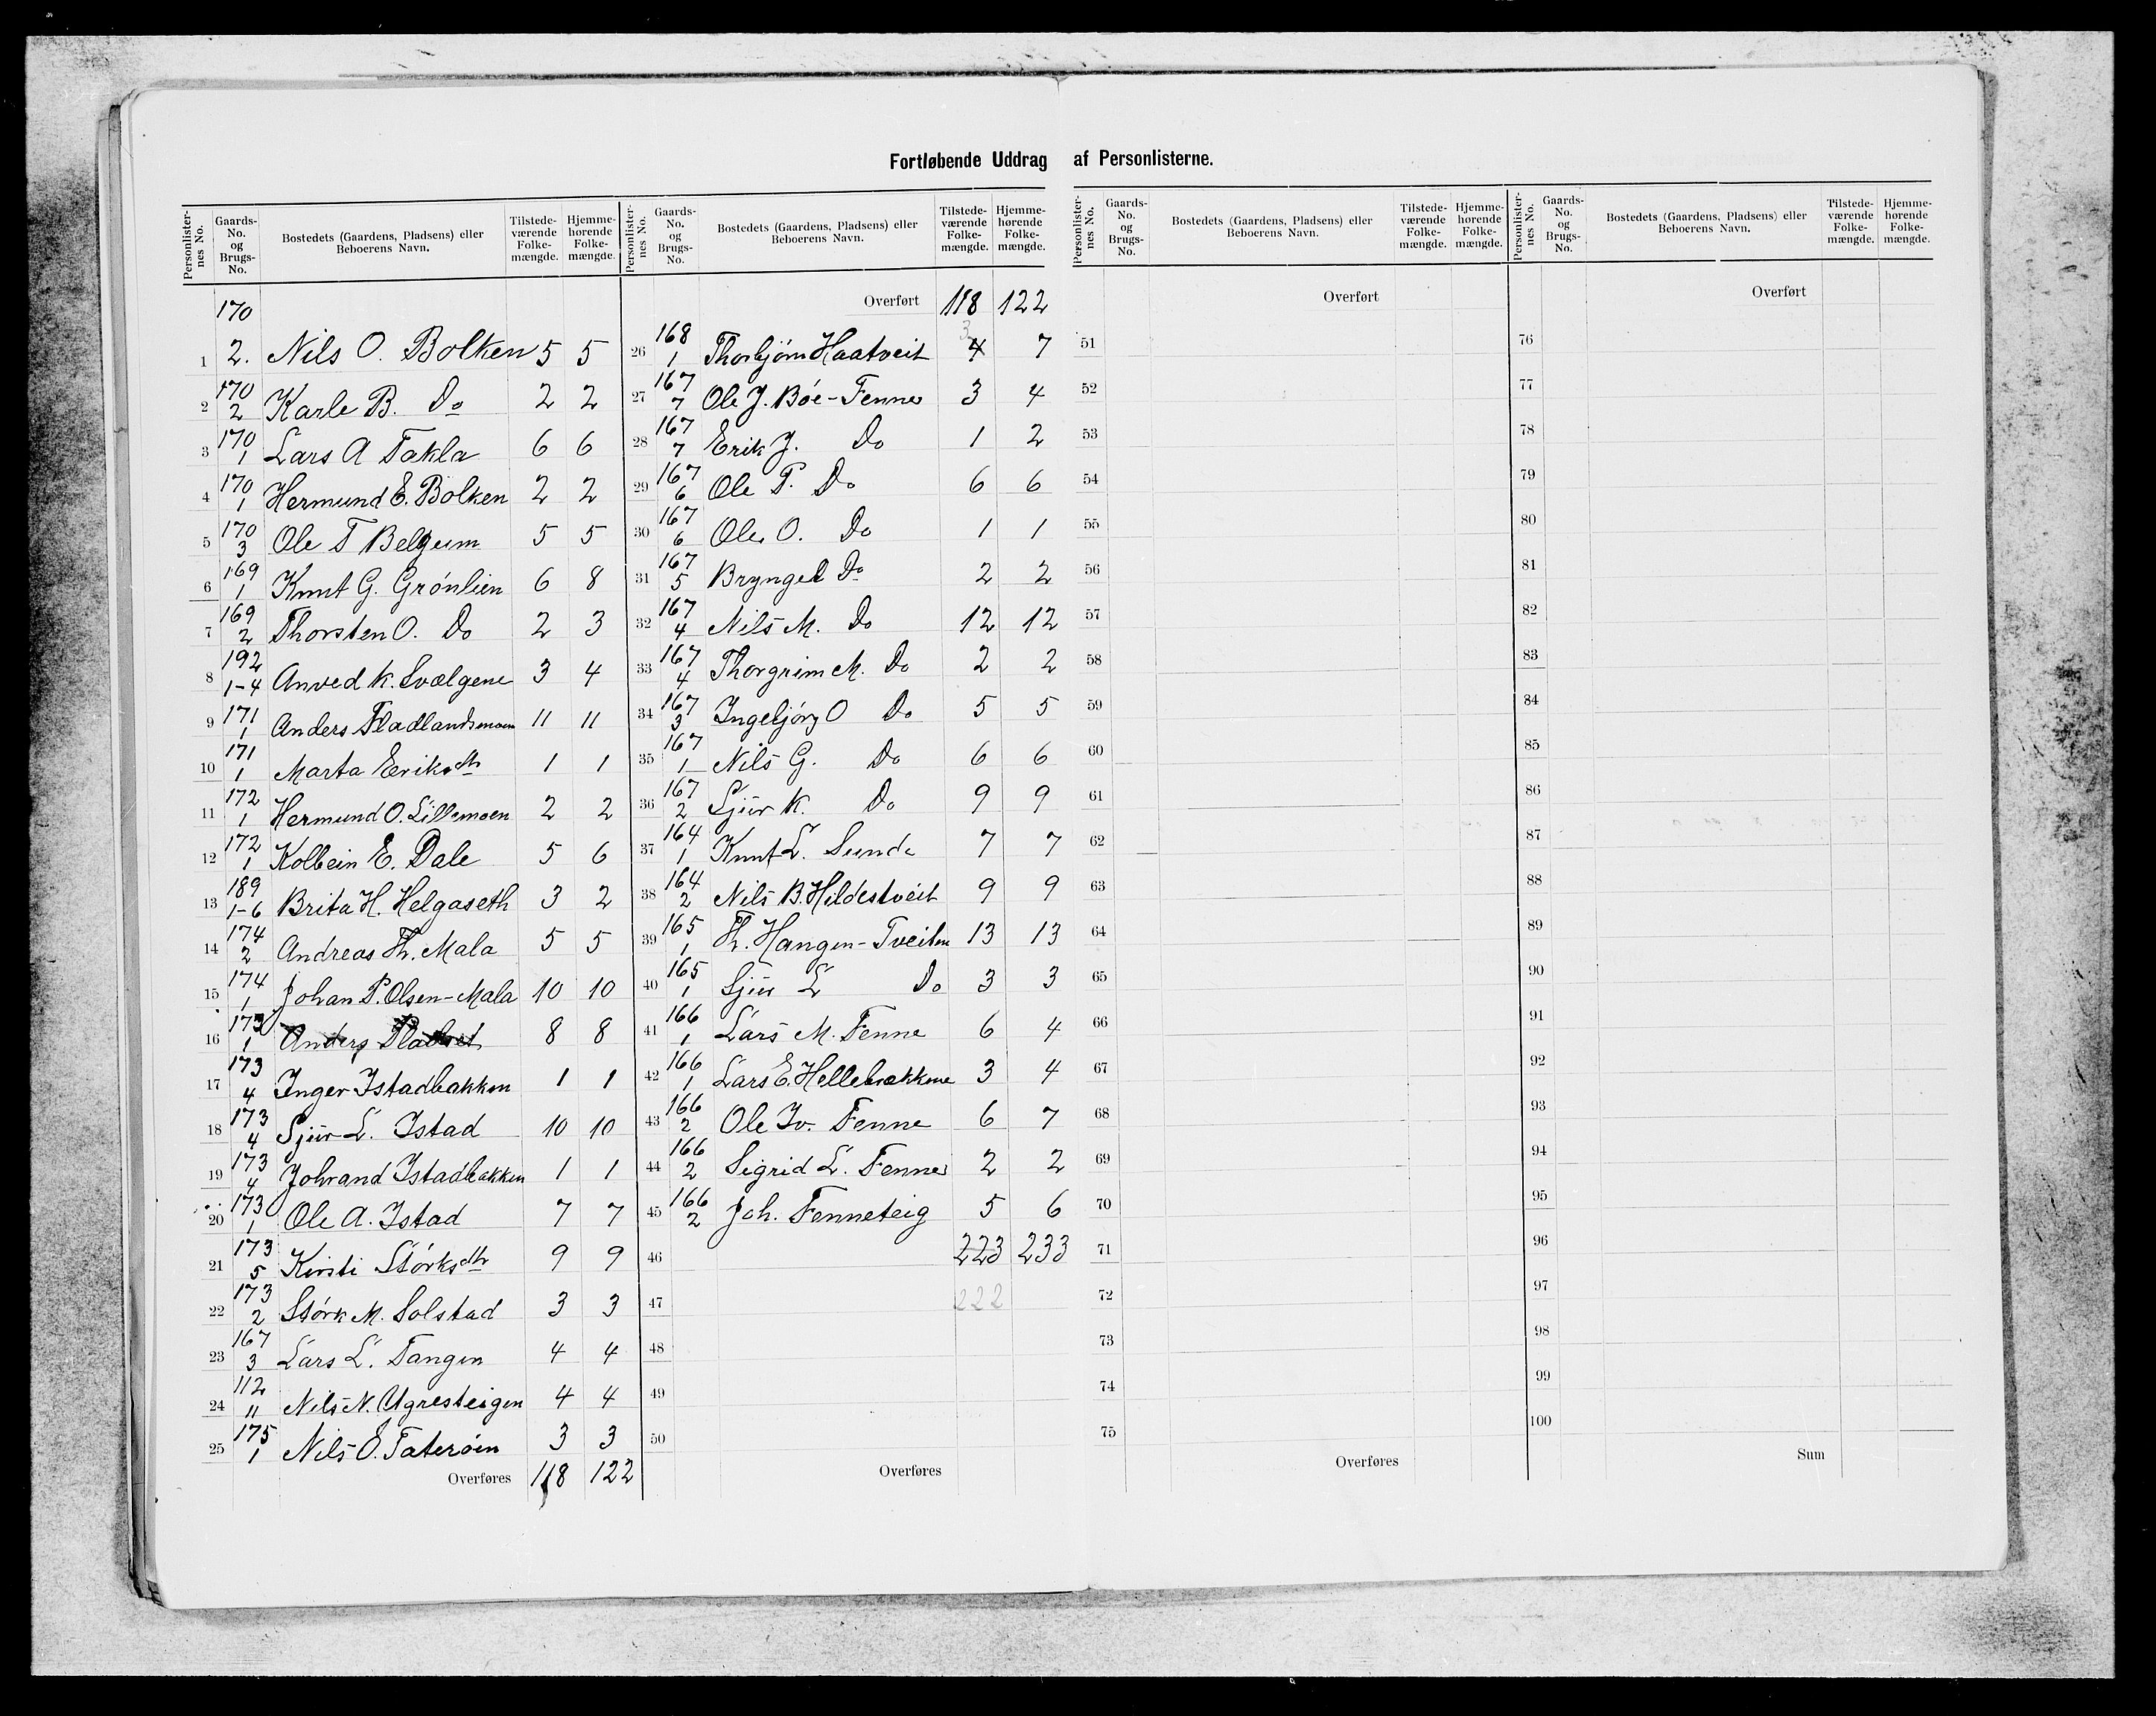 Fortløbende Uddrag af Personlisterne.
Personlisternes No. Gaards-No. og Brugs-No. Bostedets (Gaardens, Pladsens) eller Beboerens Navn. Tilstedeværende Folkemængde. Hjemmehørende Folkemængde.
1 170 2. Nils O. Bolken 5 5
2 170 2 Karle B. Do 2 2
3 170 1 Lars A Takla 6 6
4 170 1 Hermund E. Bolken 2 2
5 170 3 Ole T Belgum 5 5
6 169 1 Knut G. Grönlien 6 8
7 169 2 Thorsten O. Do 2 3
8 192 1-4 Anved K. Svælgene 3 4
9 171 1 Anders Fladlandsmoen 11 11
10 171 1 Marta Eriksdtr 1 1
11 172 1 Hermund O. Lillemoen 2 2
12 172 1 Kolbein E. Dale 5 6
13 189 1-6 Brita H. Helgaseth 3 2
14 174 2 Andreas Th. Mala 5 5
15 174 1 Johan P. Olsen-Mala 10 10
16 173 1 Anders 8 8
17 173 4 Inger Istadbakken 1 1
18 173 4 Sjur L. Istad 10 10
19 173 4 Johrand Istadbakken 1 1
20 173 1 Ole A. Istad 7 7
21 173 5 Kirsti Störksdtr 9 9
22 173 2 Störk M. Solstad 3 3
23 167 3 Lars L. Tangen 4 4
24 112 11 Nils N. Ugresteigen 4 4
25 175 1 Nils O. Tateröen 3 3
Overføres 118 122
Personlisternes No. Gaards-No. og Brugs-No. Bostedets (Gaardens, Pladsens) eller Beboerens Navn. Tilstedeværende Folkemængde. Hjemmehørende Folkemængde.
Overført 118 122
26 168 1 Thorbjörn Haatveit 4 3 7
27 167 7 Ole J. Böe-Fenne 3 4
28 167 7 Erik J. Do 1 2
29 167 6 Ole P. Do 6 6
30 167 6 Ole O. Do 1 1
31 167 5 Bryngel Do 2 2
32 167 4 Nils M. Do 12 12
33 167 4 Thorgrim M. Do 2 2
34 167 3 Ingebjörg O Do 5 5
35 167 1 Nils G. Do 6 6
36 167 2 Sjur K. Do 9 9
37 164 1 Knut L. Sunde 7 7
38 164 2 Nils B. Hildestveit 9 9
39 165 1 Th. Hangen-Tveiten 13 13
40 165 1 Sjur L Do 3 3
41 166 1 Lars M. Fenne 6 4
42 166 1 Lars E. Hellebrækkene 3 4
43 166 2 Ole Iv. Fenne 6 7
44 166 2 Sigrid L. Fenne 2 2
45 166 2 Joh. Fenneteig 5 6
46 223 233
47 222
48
49
50
Overføres
Personlisternes No. Gaards-No. og Brugs-No. Bostedets (Gaardens, Pladsens) eller Beboerens Navn. Tilstedeværende Folkemængde. Hjemmehørende Folkemængde.
Overført
51
52
53
54
55
56
57
58
59
60
61
62
63
64
65
66
67
68
69
70
71
72
73
74
75
Overføres
Personlisternes No. Gaards-No. og Brugs-No. Bostedets (Gaardens, Pladsens) eller Beboerens Navn. Tilstedeværende Folkemængde. Hjemmehørende Folkemængde.
Overført
76
77
78
79
80
81
82
83
84
85
86
87
88
89
90
91
92
93
94
95
96
97
98
99
100
Sum